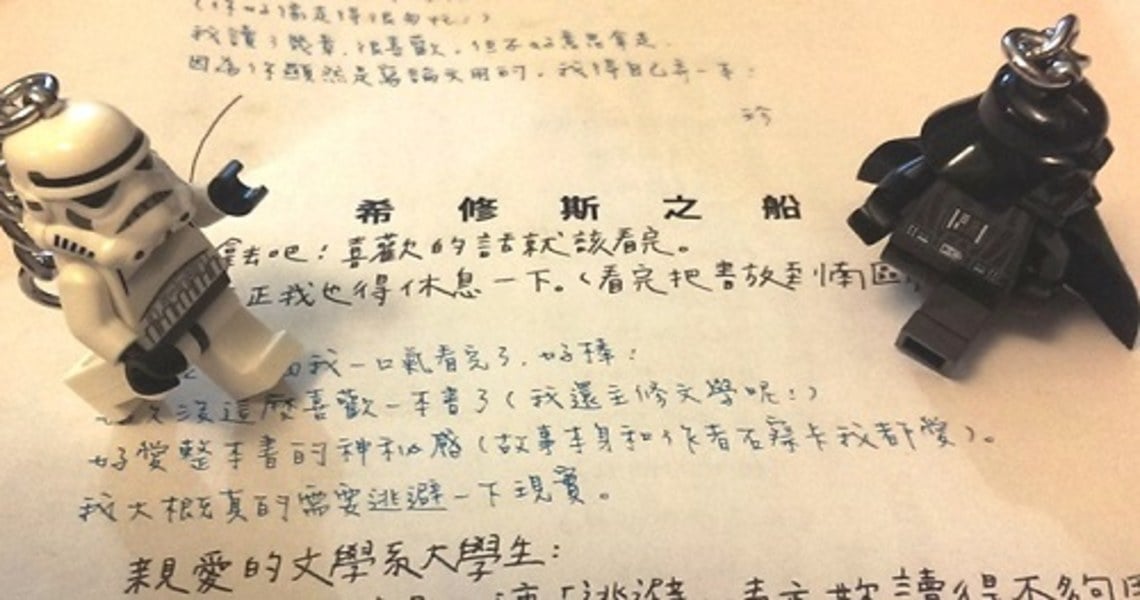 (你好像走得很匆忙！)
我讀了幾章，很喜歡，但不好意思拿走，
因為你顯然是寫論文用的，我得自己弄一本！
珍
希修斯之船
拿去吧！喜歡的話就該看完。
正我也得休息一下。(看完把書放到南區
我一口氣看完了，好棒！
沒這麼喜歡一本書了(我還主修文學呢！)
好愛整本書的神秘感(故事本身和作者石察卡我都愛)。
我大概真的需要逃避一下現實。
親愛的文學系大學生：
「逃避」，表示妳讀得不夠用